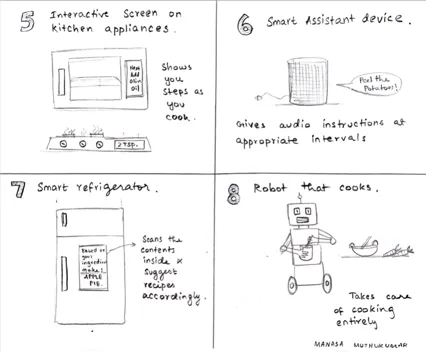 5 Interactive Screen on
kitchen appliances.
Now
Add
Olive
Oil
Shows
you
Steps as
you
cook.
2 tsp.
6 Smart Assistant device.
Peel the
Potatoes!
Gives audio instructions at
appropriate intervals
7 Smart refrigerator.
Based on
your
ingredients
make:
APPLE
PIE.
Scans the
contents
inside &
suggest
recipes
accordingly.
8 Robot that cooks.
Takes care
of cooking
entirely
MANASA MUTHUKUMAR